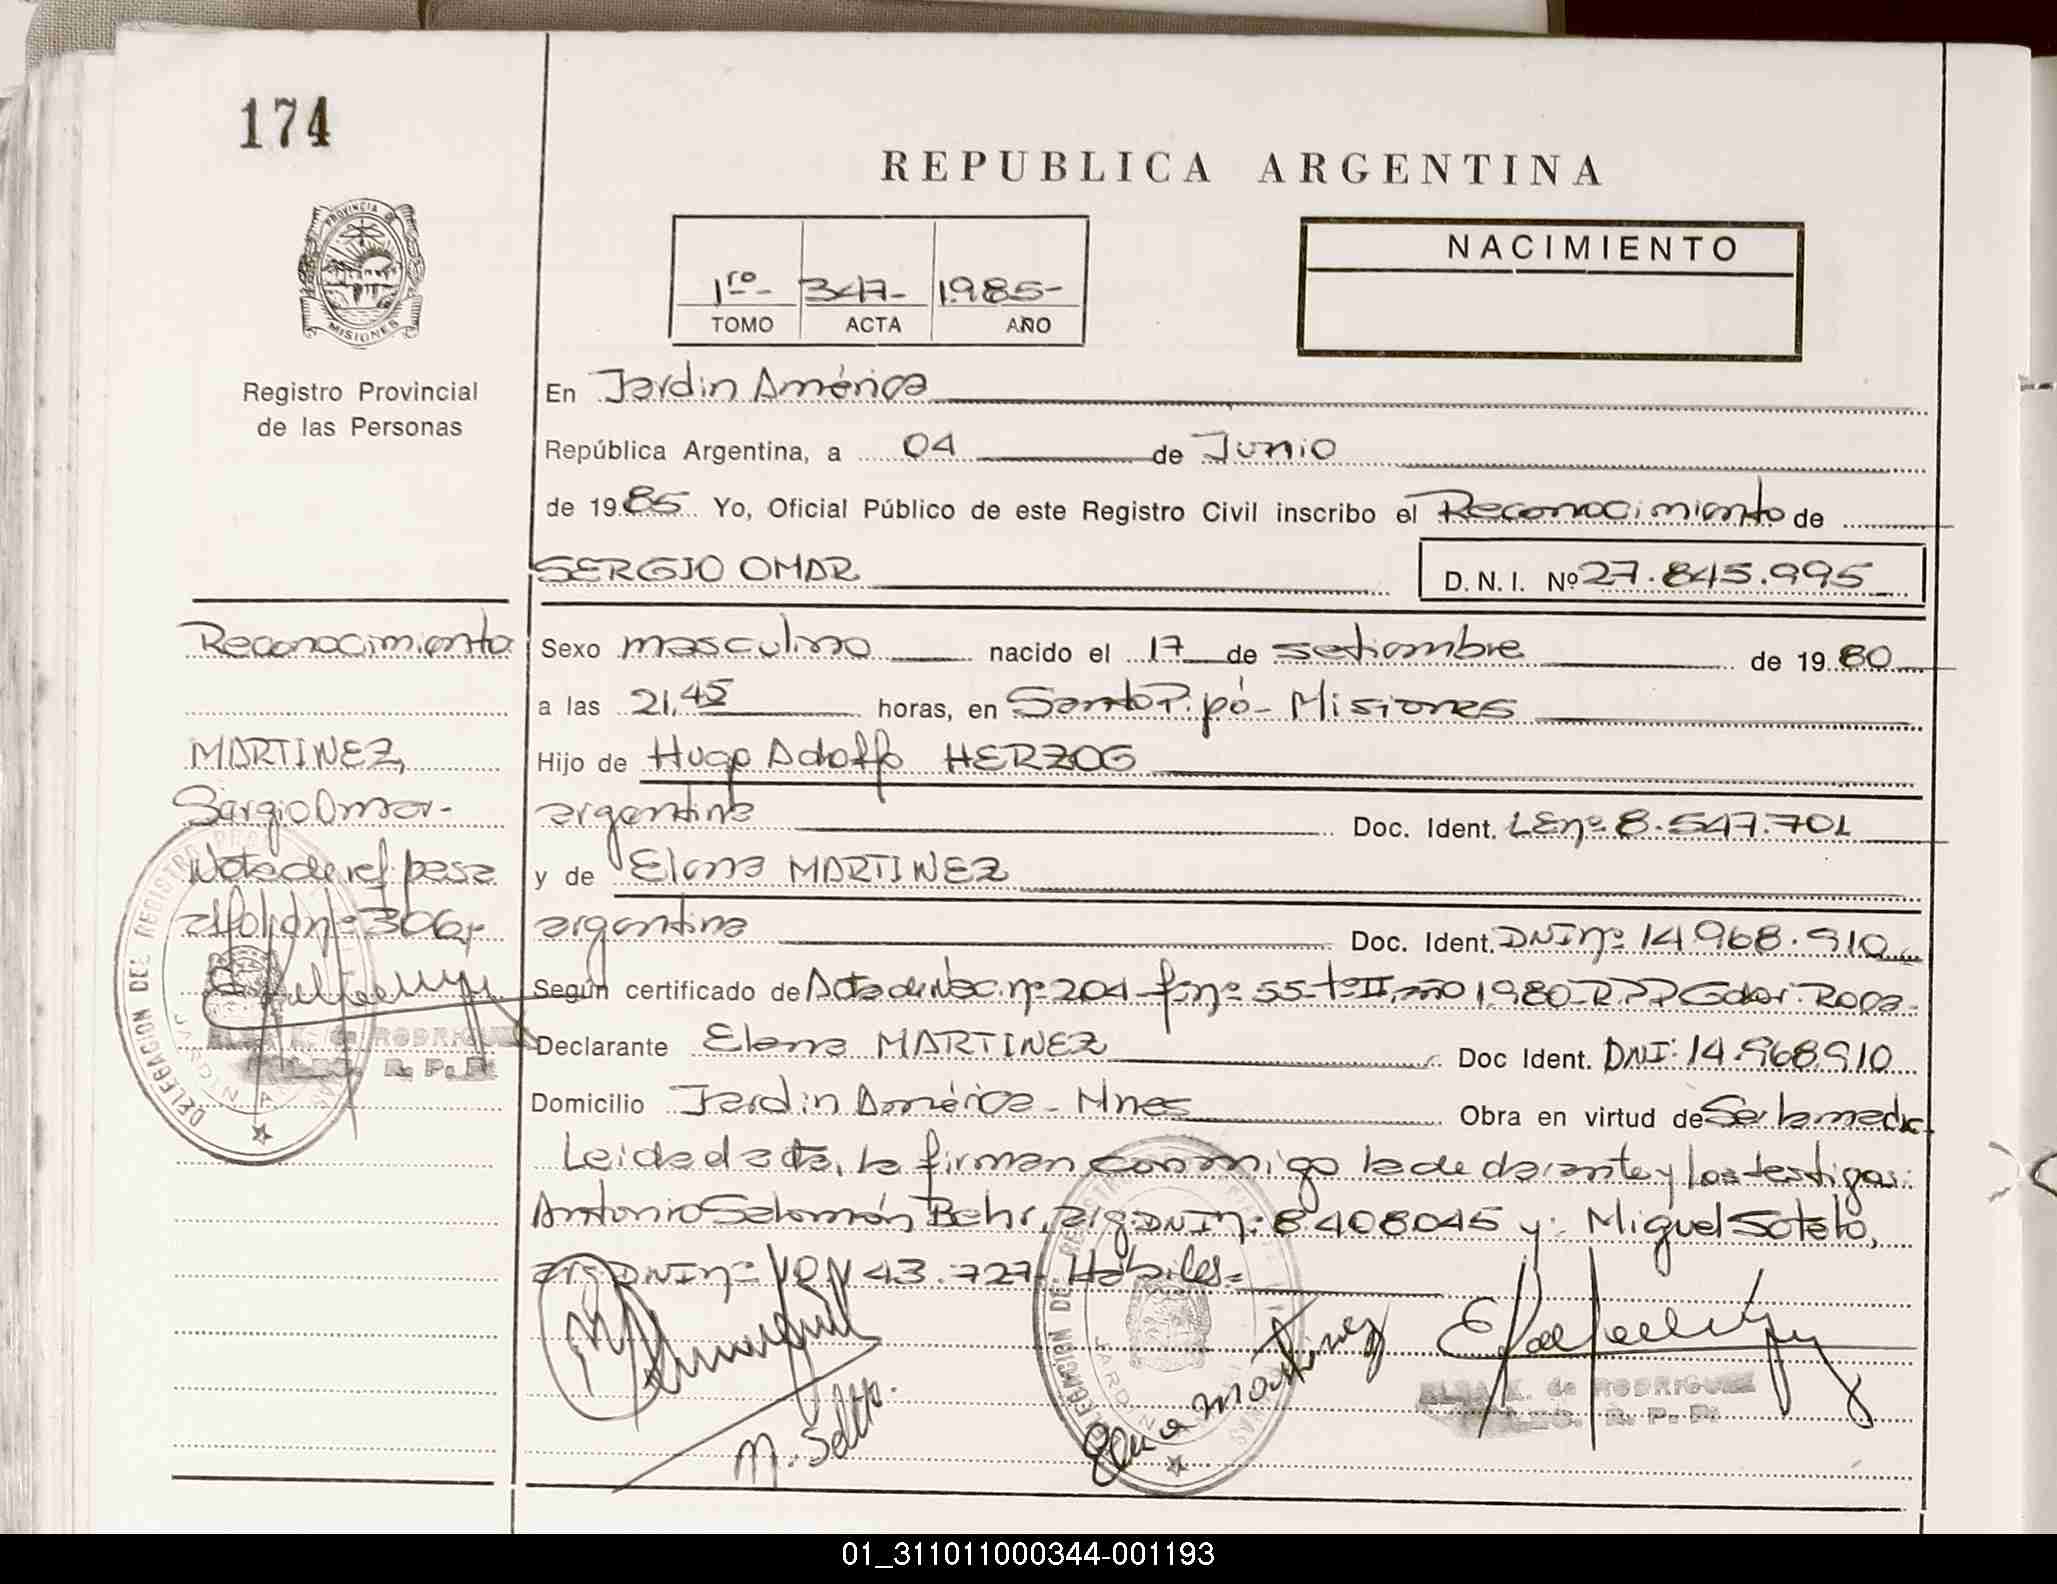 174
REPUBLICA ARGENTINA
PROVINCIA DE
MISIONES
NACIMIENTO
1ro- 347- 1.985-
TOMO ACTA AÑO
Registro Provincial
de las Personas
En Jardin América
República Argentina, a 04 de Junio
de 1985 Yo, Oficial Público de este Registro Civil inscribo el Reconocimiento de
SERGIO OMAR
D. N. I. Nº 27.845.995
Reconocimiento
MARTINEZ,
Sergio Omar-
Nota de ref. pasa
al folio nº 306,-
DELEGACION DEL REGISTRO
ELSA K. de RODRIGUEZ
R. P. P.
Sexo masculino nacido el 17 de setiembre de 1980
a las 21,45 horas, en Santo Pipó- Misiones
Hijo de Hugo Adolfo HERZOG
argentina Doc. Ident. LEnº 8.547.701
y de Elena MARTINEZ
argentina Doc. Ident. DNI nº 14.968.910
Según certificado de Acta de Nac. nº 204 fº nº 55 tº II, año 1980-R.P.P. Gdor. Roca-
Declarante Elena MARTINEZ Doc Ident. DNI: 14.968.910
Domicilio Jardin América- Mnes Obra en virtud de Ser la madre
Leida el acta, la firman conmigo la declarante y los testigos:
Antonio Salomón Behr, arg. DNI nº: 8.408045 y: Miguel Sotelo,
arg DNI nº 43.727- Hábiles.=
M. Sotelo.
Elena Martinez
DELEGACION DEL REGISTRO
ELSA K. de RODRIGUEZ
R. P. P.
01_311011000344-001193